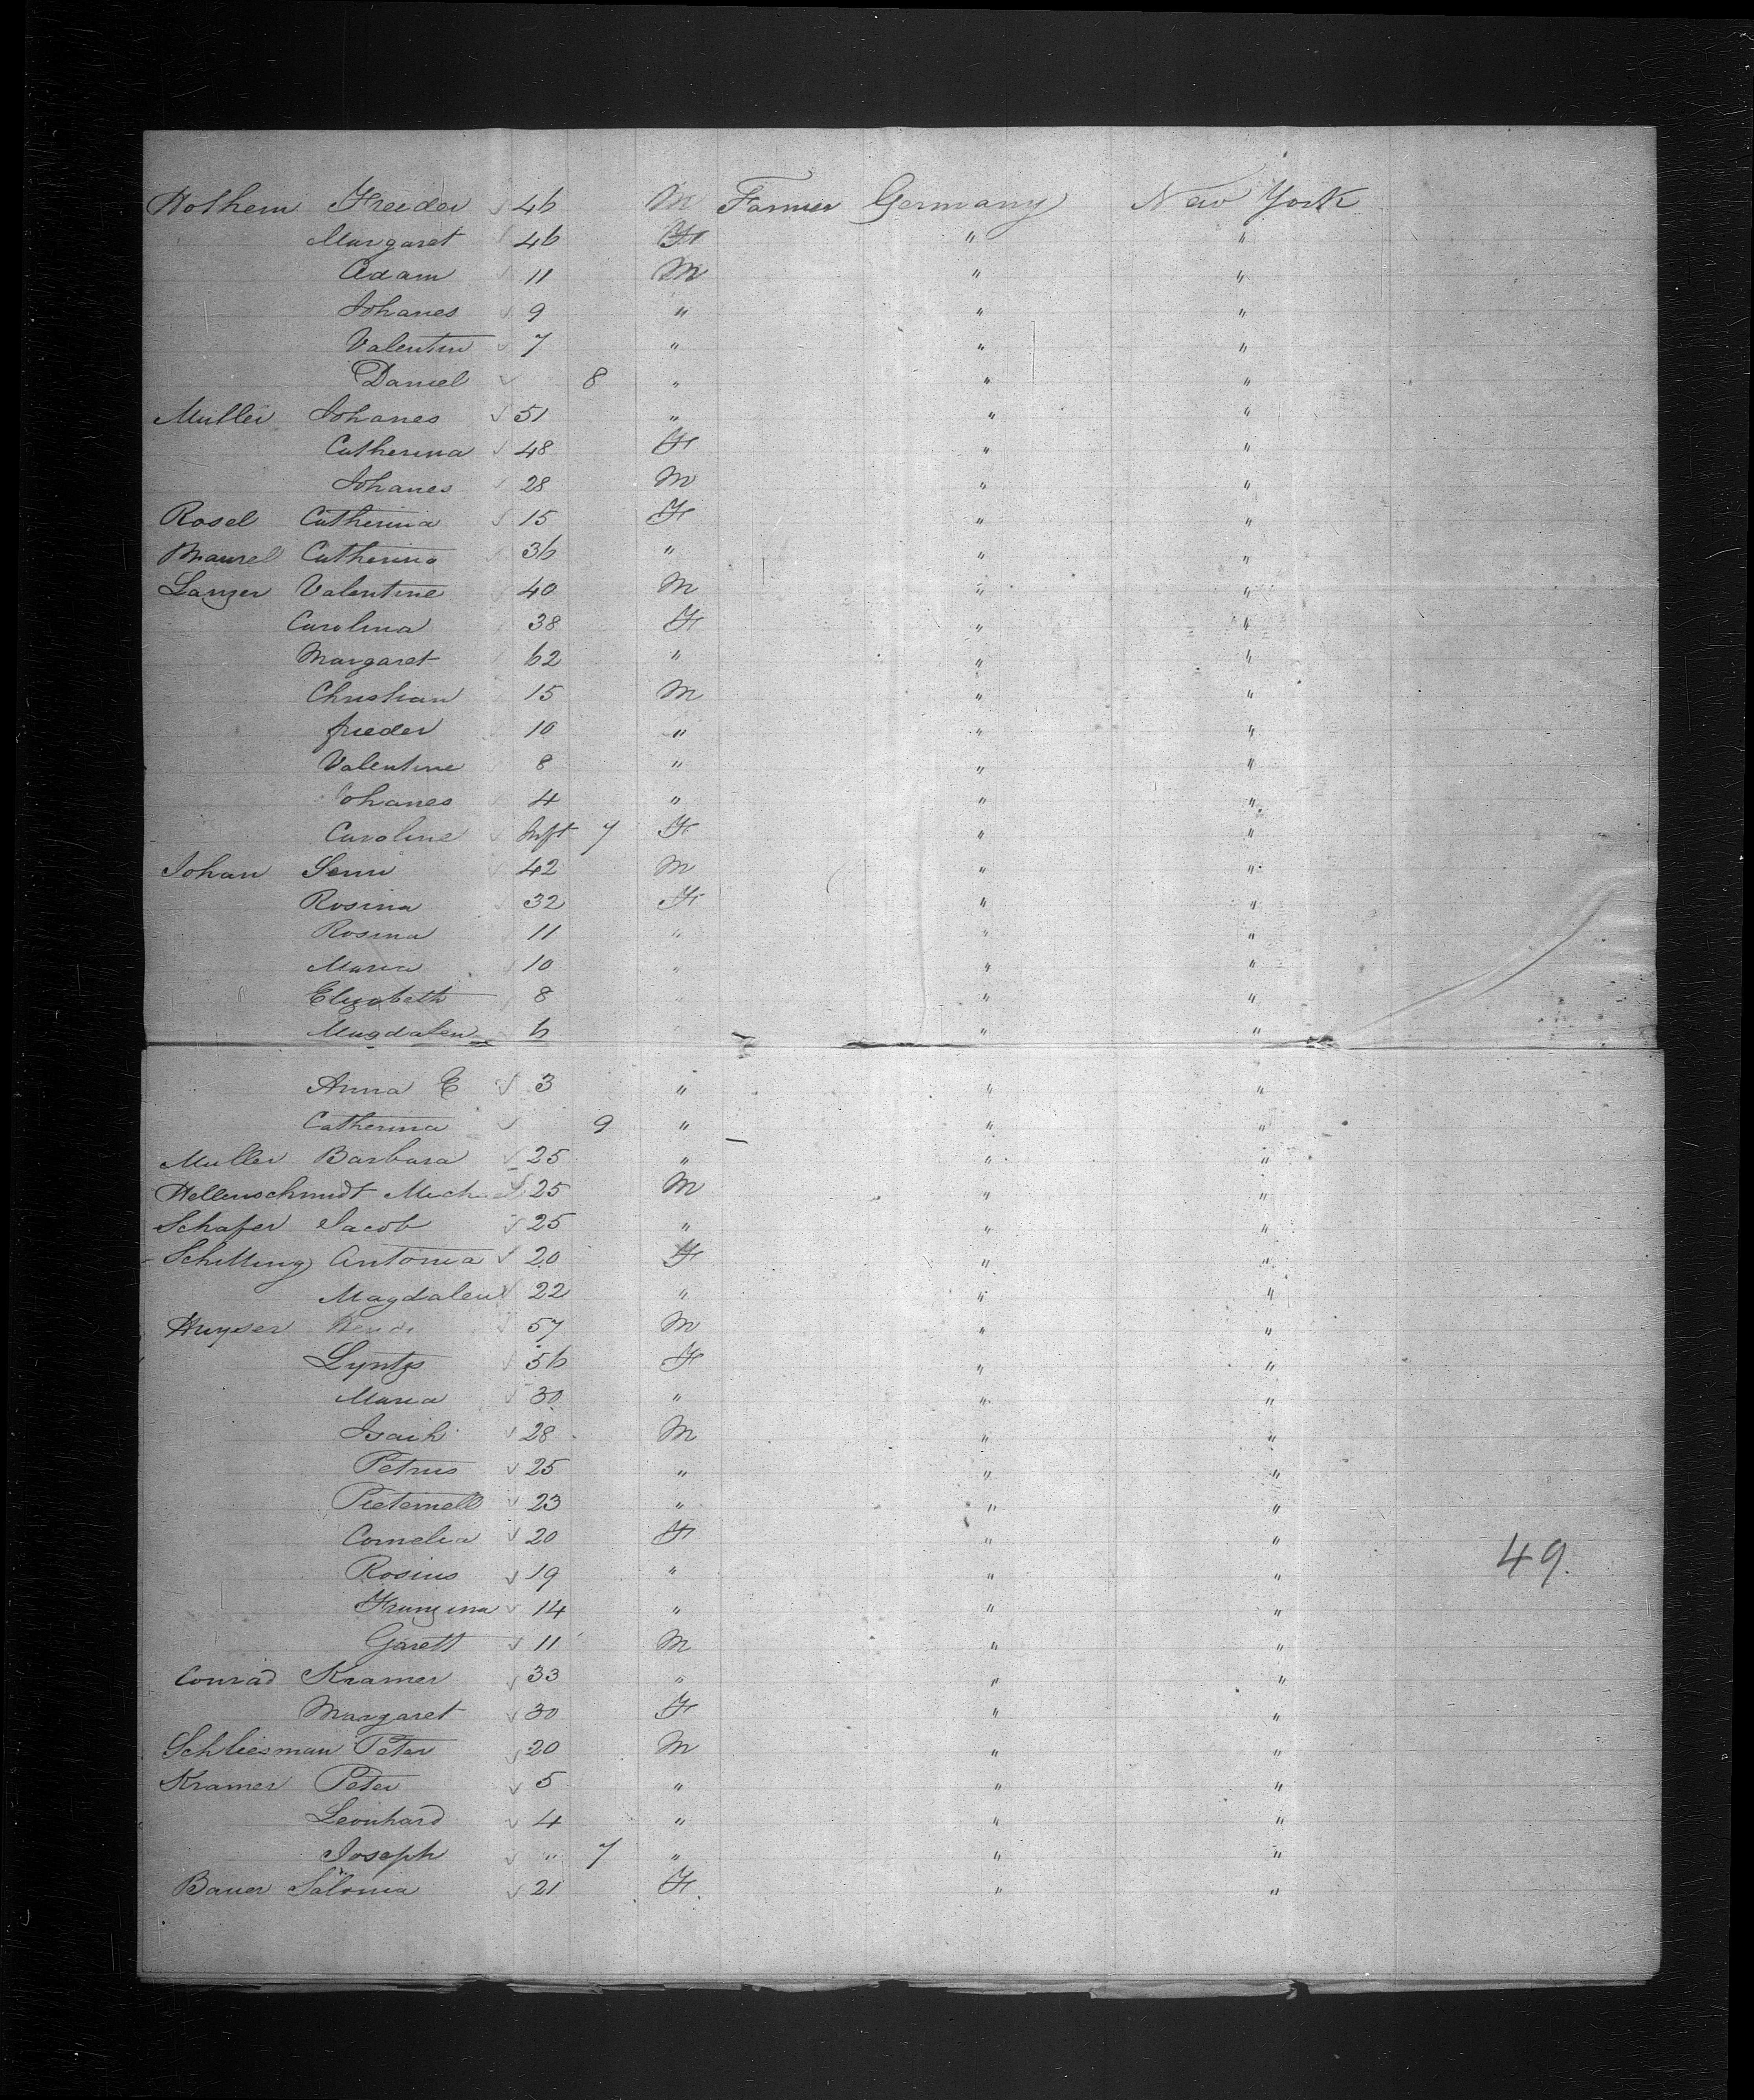 Hothem Frieder 46 M Farmer Germany New York
Margaret 46 F " "
Adam 11 M " "
Johanes 9 " " "
Valentin 7 " " "
Daniel 8 " " "
Muller Johanes 51 " " "
Catherina 48 F " "
Johanes 28 M " "
Rosel Catherina 15 F " "
Catherina 36 " " "
Langer Valentine 40 M " "
Carolina 38 F " "
Margaret 62 " " "
Christian 15 M " "
frieder 10 " " "
Valentine 8 " " "
Johanes 4 " " "
Caroline Inft 7 F " "
Johan 42 M " "
Rosina 32 F " "
Rosina 11 " " "
Maria 10 " " "
Elizabeth 8 " " "
Magdalen 6 " "
Anna E 3 " " "
Catherina 9 " " "
Muller Barbara 25 " " "
Hellenschmidt Mich 25 M " "
Schafer Jacob 25 " " "
Schilling Antonia 20 F " "
Magdalen 22 " " "
Huyser 57 M " "
Lyntgs 56 F " "
Maria 30 " " "
Isaih 28 M " "
Petrus 25 " " "
Pieternell 23 " " "
Cornelia 20 F " "
Rosius 19 " " "
Franzina 14 " " "
Garett 11 M " "
Conrad Kramer 33 " " "
Margaret 30 F " "
Schliesman Peter 20 M " "
Kramer Peter 5 " " "
Leonhard 4 " " "
Joseph " 7 " " "
Bauer Salomia 21 F " "
49.